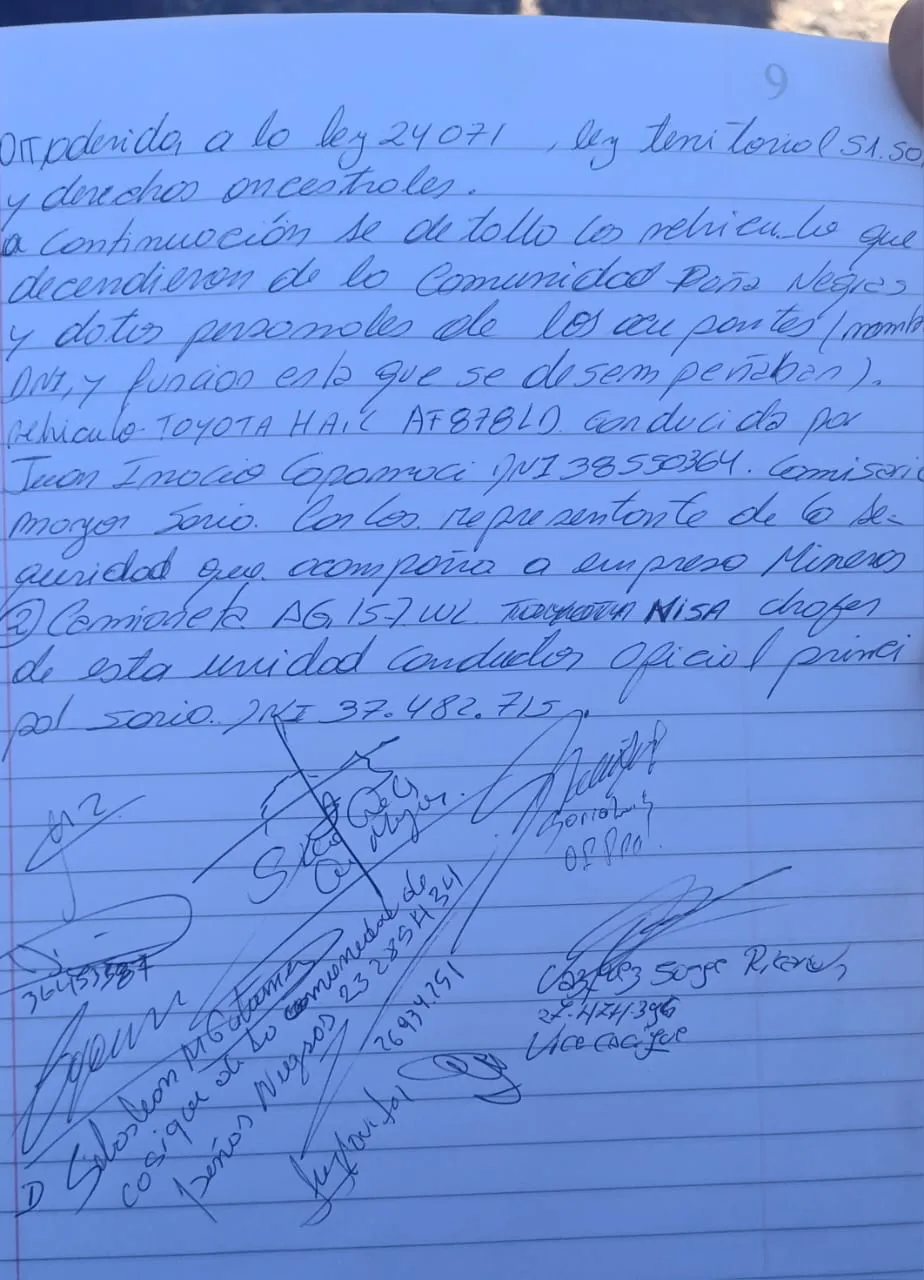 9
a lo ley 24071, ley territorial
y derechos oncestroles.
a continuoción se detollo los vehiculo que
decendieron de lo Comunidad Peña Negras
y dotos personoles de los ocupontes (nomb
DNI, y funcion en lo que se desempeñaban).
vehiculo TOYOTA HAIL AF878LD Conducido por
Juan Inocio DNI 38550364. Comisario
mayor Sorio. Corlos. representonte de lo se-
guridad que ocompoña a empresa Mineros
2) Camioneta AG 157 WL NISA chofer
de esta unidad conductor Oficiol princi
pal sorio. DNI 37.482.715.
Mayor.
OF PPAl
36455587
D Sebostian
cosique de lo comunidad de
peños Negros 23285434
26934291
Jorge Ricardo
27.474.396
Vice cacique